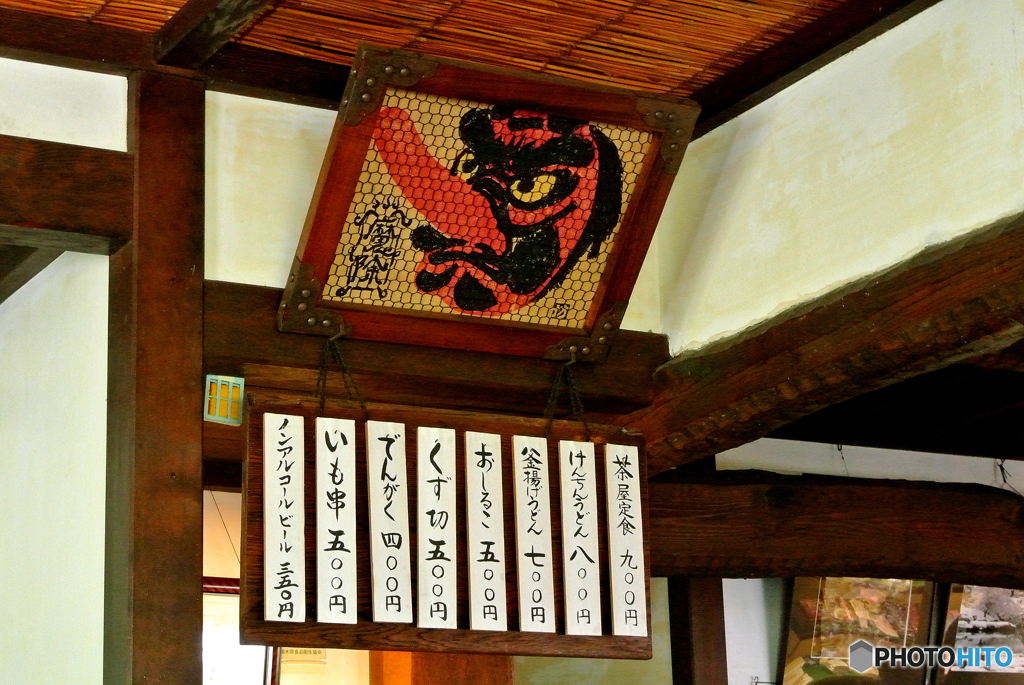 魔除
茶屋定食 九〇〇円
けんちんうどん 八〇〇円
釜揚げうどん 七〇〇円
おしるこ 五〇〇円
くず切 五〇〇円
でんがく 四〇〇円
いも串 五〇〇円
ノンアルコールビール 三五〇円
PHOTOHITO